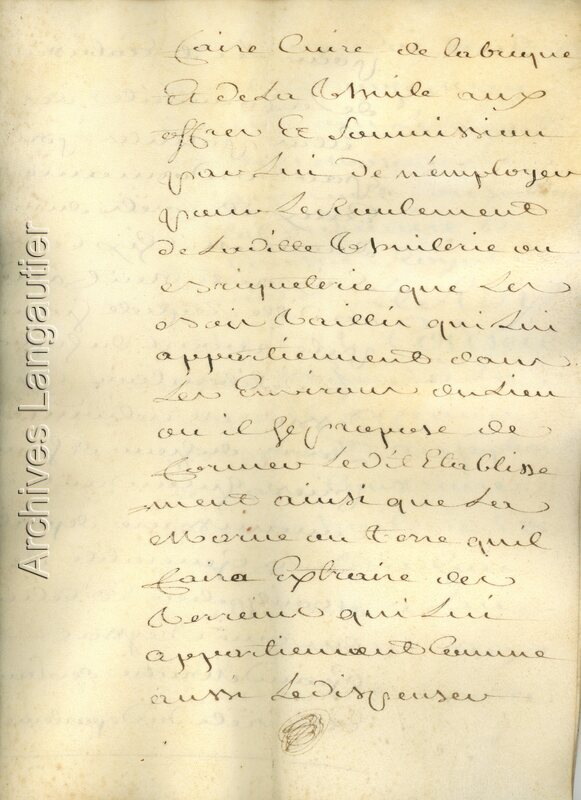 faire Cuire de la brique
Et de La Thuile aux
offres Et Soumission
par Lui de n'employer
pour Le Roulement
de Ladille Thuilerie ou
Briqueterie que Les
Bois Taillis qui Lui
appartiennent dans
Les Environs du Lieu
ou il Se propose de
former Le dit Etablisse
=ment ainsi que Les
Marne ou terre quil
faira Extraire des
Terreins qui Lui
appartiennent Comme
aussi Le dispenser
Archives Langautier